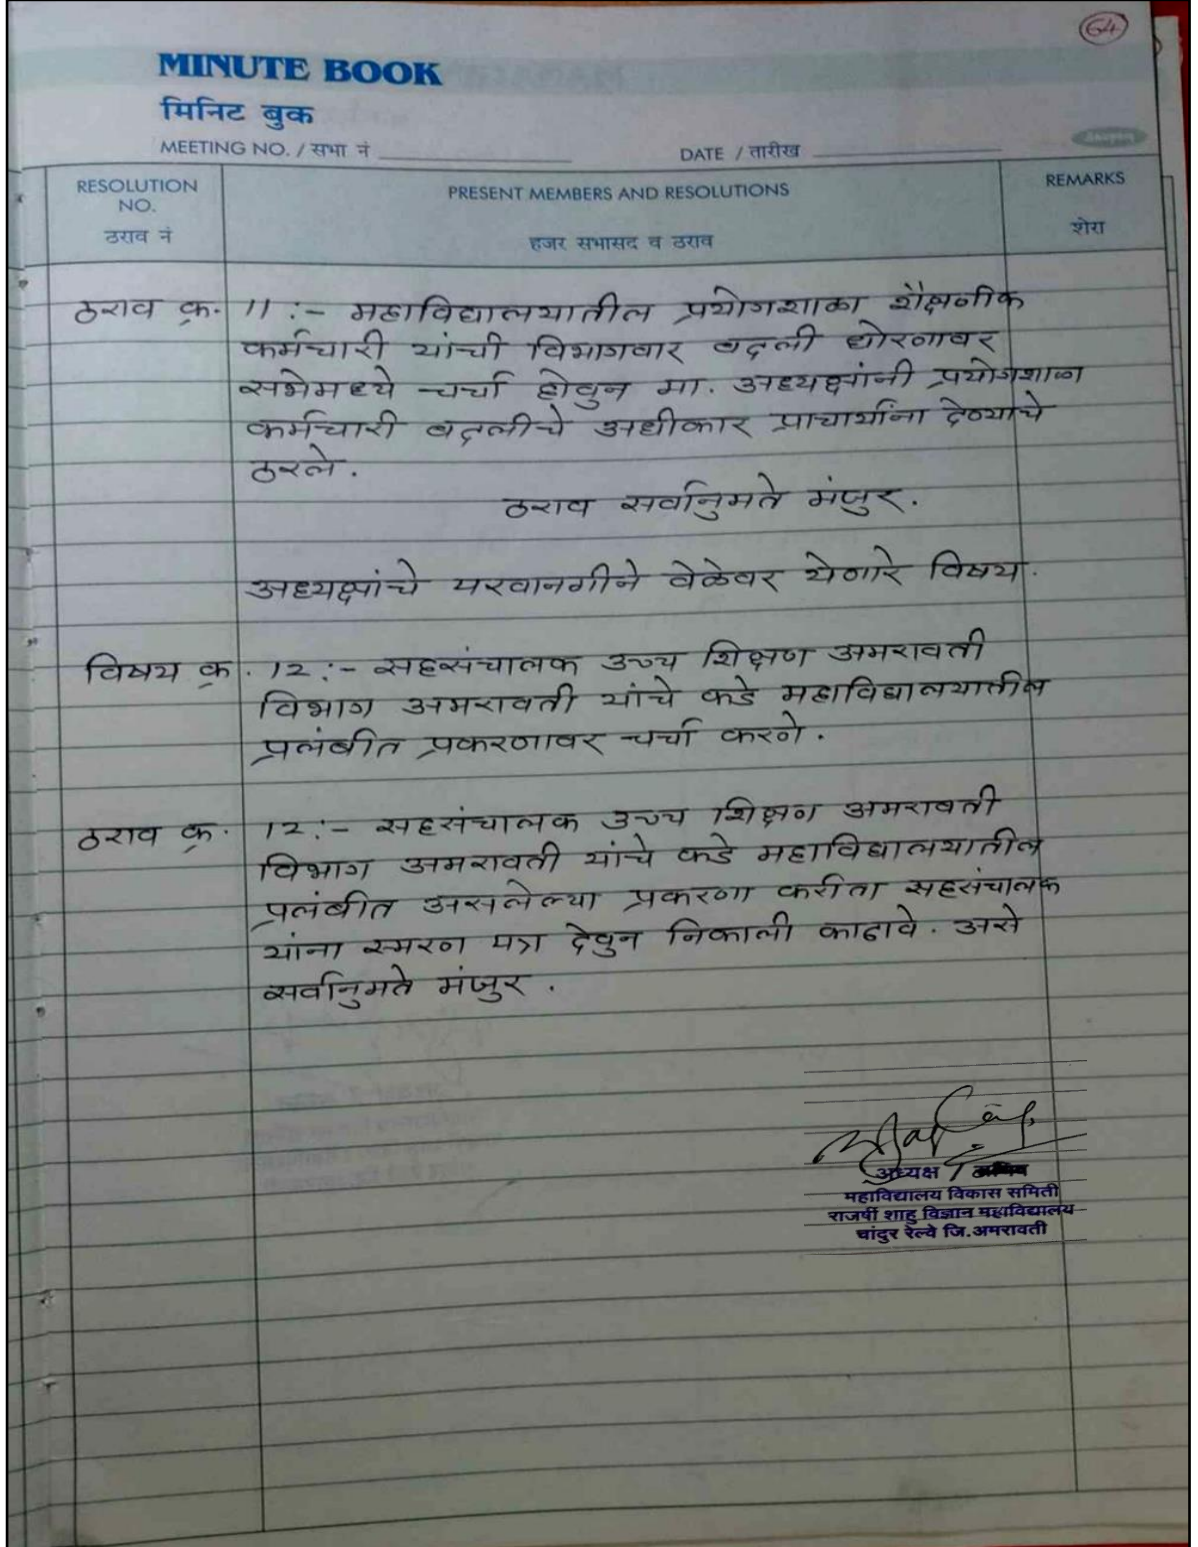 64
MINUTE BOOK
मिनिट बुक
MEETING NO. / सभा नं
DATE / तारीख
RESOLUTION NO.
ठराव नं
PRESENT MEMBERS AND RESOLUTIONS
हजर सभासद व ठराव
REMARKS
शेरा
ठराव क्र. 11 :- महाविद्यालयातील प्रयोगशाळा शैक्षणीक
कर्मचारी यांची विभागवार बदली धोरणावर
सभेमध्ये चर्चा होवुन मा. अध्यक्षांनी प्रयोगशाळा
कर्मचारी बदलीचे अधीकार प्राचार्यांना देण्याचे
ठरले.
ठराव सर्वानुमते मंजुर.
अध्यक्षांचे परवानगीने वेळेवर येणारे विषय.
विषय क्र. 12 :- सहसंचालक उच्च शिक्षण अमरावती
विभाग अमरावती यांचे कडे महाविद्यालयातील
प्रलंबीत प्रकरणावर चर्चा करणे.
ठराव क्र. 12 :- सहसंचालक उच्च शिक्षण अमरावती
विभाग अमरावती यांचे कडे महाविद्यालयातील
प्रलंबीत असलेल्या प्रकरणा करीता सहसंचालक
यांना स्मरण पत्र देवुन निकाली काढावे. असे
सर्वानुमते मंजुर.
अध्यक्ष
महाविद्यालय विकास समिती
राजर्षी शाहु विज्ञान महाविद्यालय
चांदुर रेल्वे जि.अमरावती